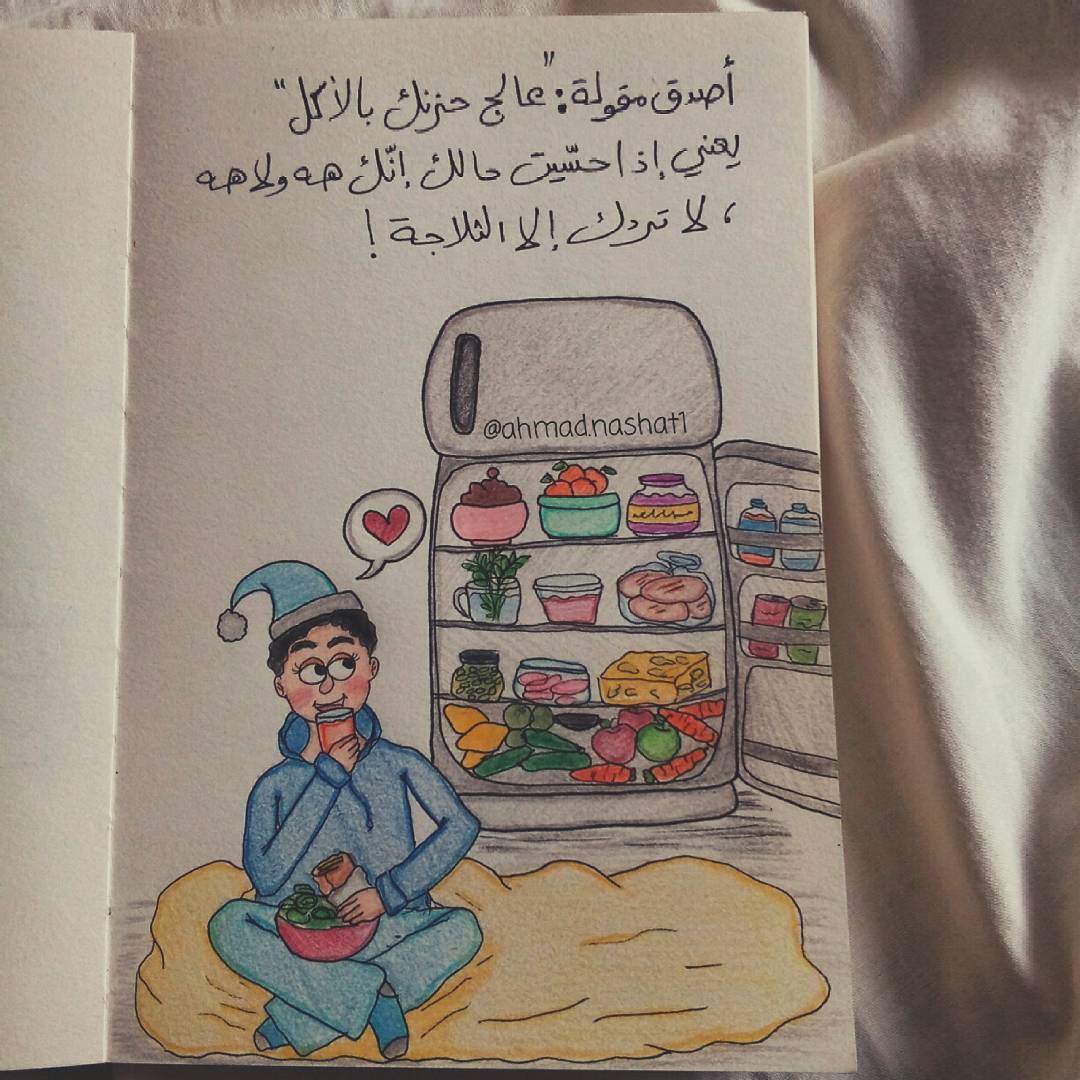 أصدق مقولة: "عالج حزنك بالأكل"
يعني إذا حسّيت حالك إنّك هه ولا هه
، لا تردك إلا الثلاجة !
@ahmad.nashat1